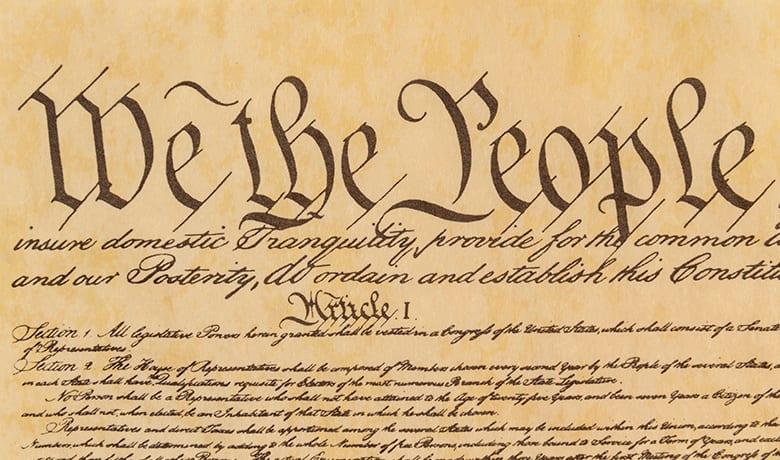 We the People
insure domestic Tranquility, provide for the common
and our Posterity, do ordain and establish this Constitu
Article. I.
Section 1. All legislative Powers herein granted shall be vested in a Congress of the United States, which shall consist of a Senat
of Representatives.
Section 2. The House of Representatives shall be composed of Members chosen every second Year by the People of the several States, a
in each State shall have Qualifications requisite for Electors of the most numerous Branch of the State Legislature.
No Person shall be a Representative who shall not have attained to the Age of twenty five Years, and been seven Years a Citizen of th
and who shall not, when elected, be an Inhabitant of that State in which he shall be chosen.
Representatives and direct Taxes shall be apportioned among the several States which may be included within this Union, according to thei
Numbers, which shall be determined by adding to the whole Number of free Persons, including those bound to Service for a Term of Years, and exc